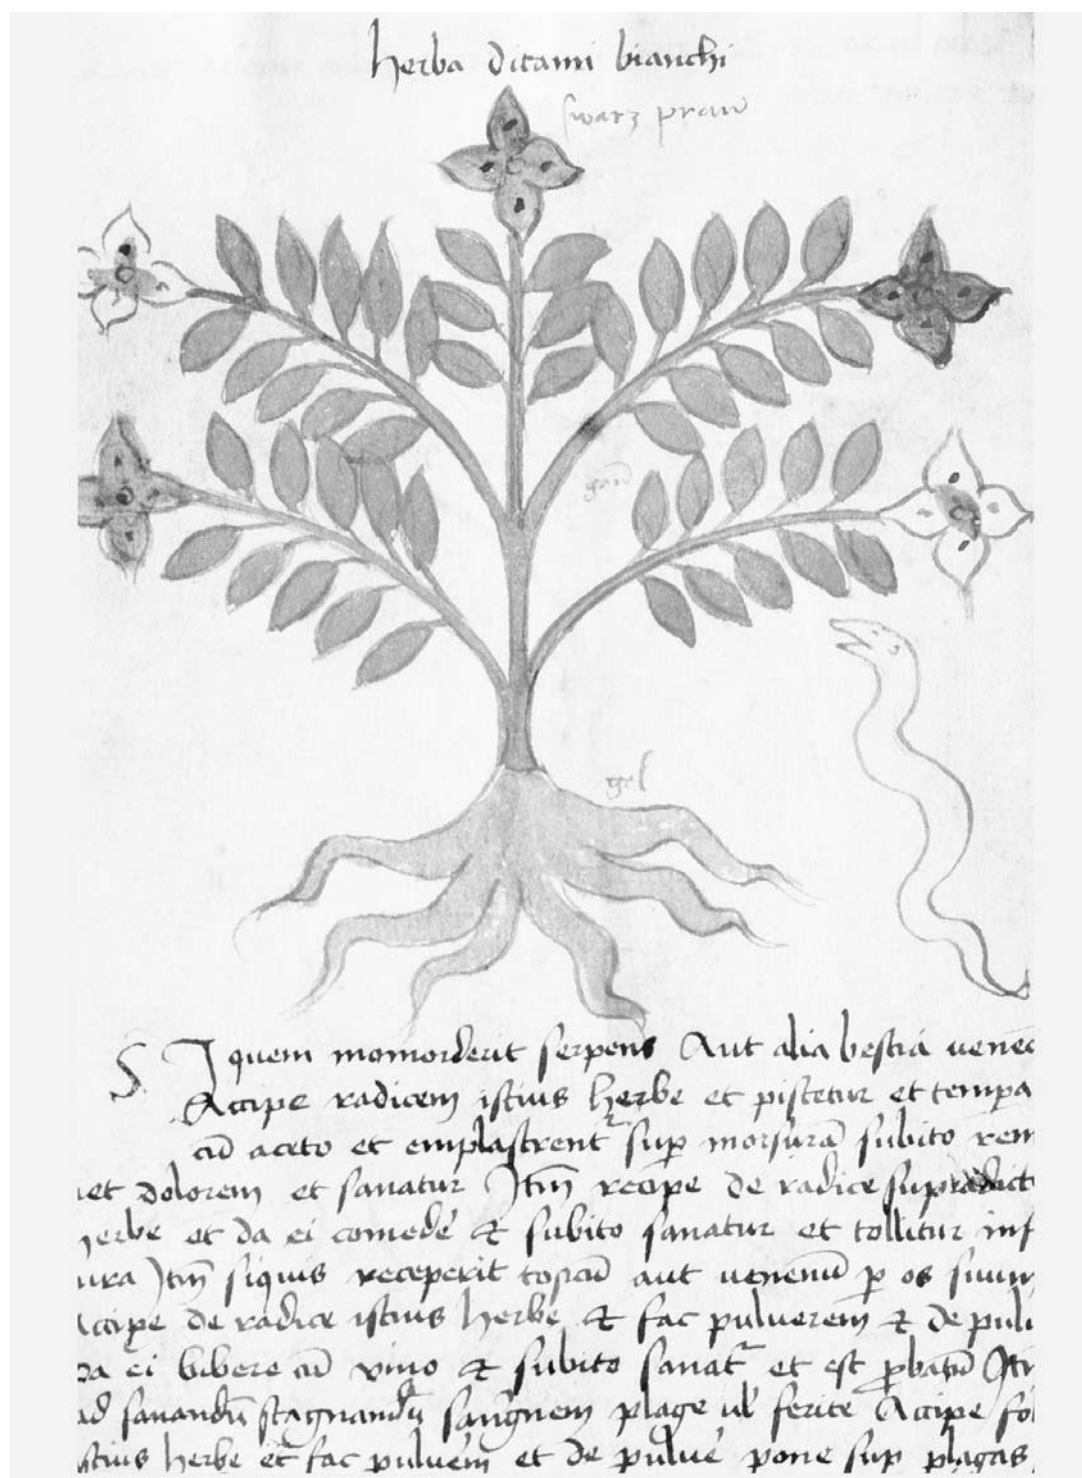 herba ditami bianchi
swarz praun
gel
SI quem momorderit serpens Aut alia bestia uene
Accipe radicem istius herbe et pistetur et tempa
cū aceto et emplastrent sup morsurā subito rem
et dolorem et sanatur Jtm̄ recipe de radice supradict
erbe et da ei comede & subito sanatur et tollitur inf
ura Jtm̄ siquis receperit toscū aut uenenū p os suum
Accipe de radice istius herbe & fac puluerem & de pulu
da ei bibere cū vino & subito sanat et est pbatū Jt
ad sanandū stagnandū sanguem plage ul ferite Accipe fol
istius herbe et fac puluem et de pulue pone sup plagas